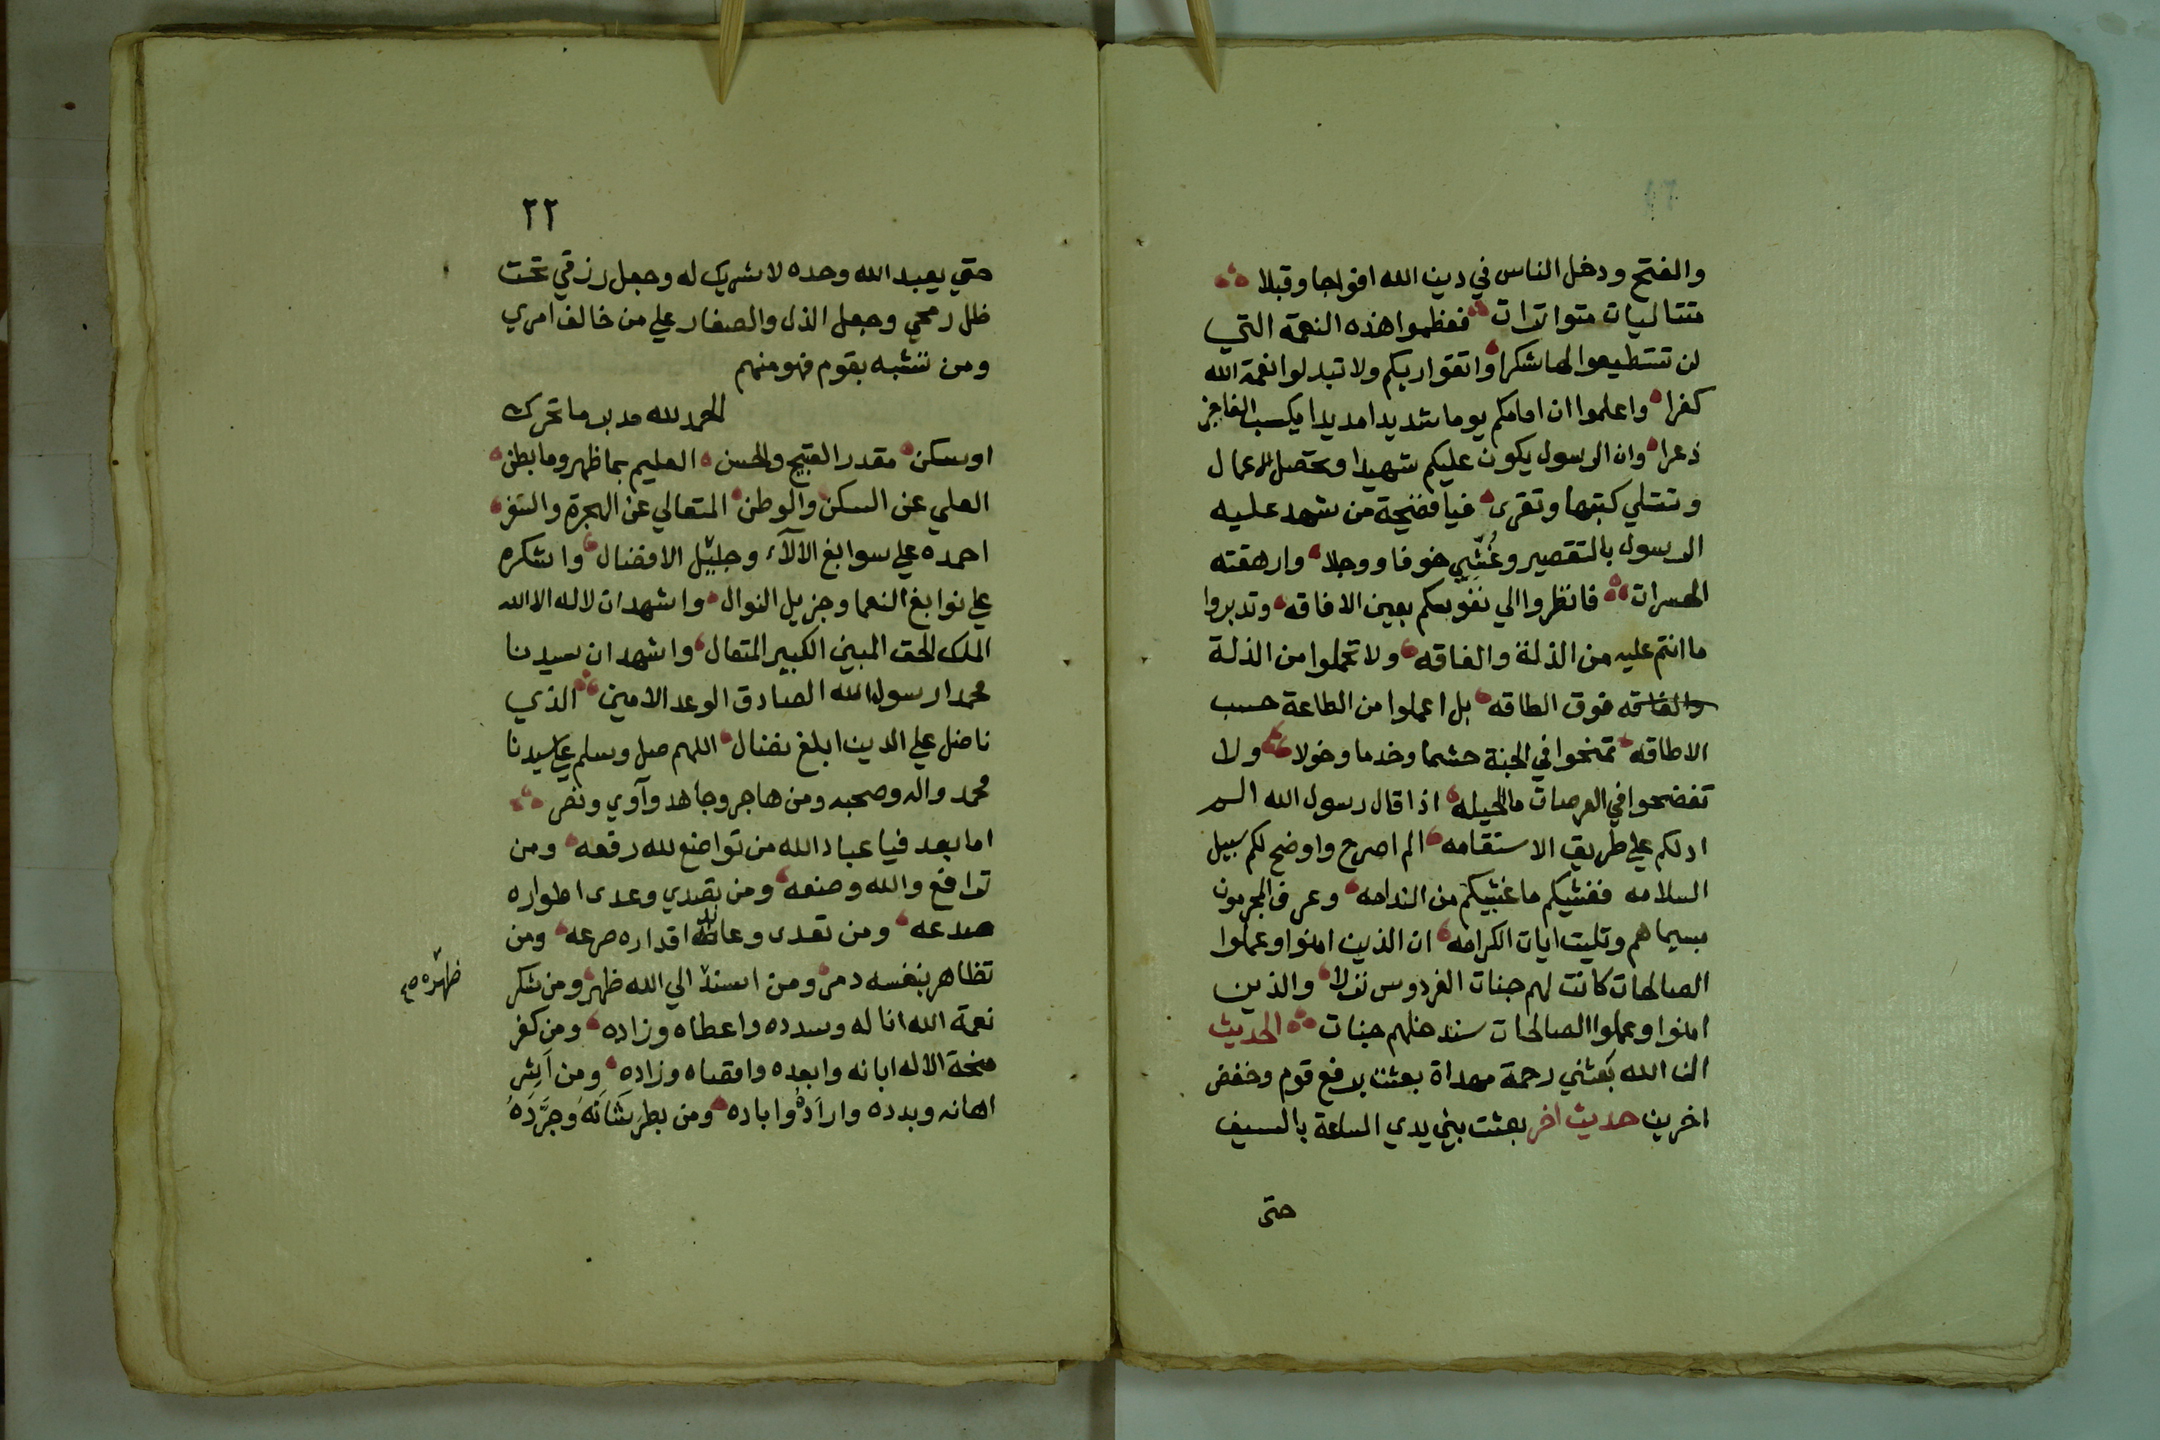 والفتح ودخل الناس في دين الله افواجا وقبلا
متتاليات متواترات فعظموا هذه النعمة التي
لن تستطيعوا لها شكرا واتقوا ربكم ولا تبدلوا نعمة الله
كفرا واعلموا ان امامكم يوما شديدا مديدا يكسب الفاجر
ذعرا وان الرسول يكون عليكم شهيدا وتحصل الاعمال
وتتلي كتبها وتقرى فيا فضيحة من شهد عليه
الرسول بالتقصير وغشي خوفا ووجلا وارهقته
الحسرات فانظروا الي نفوسكم بعين الافاقه وتدبروا
ما انتم عليه من الذلة والفاقه ولا تحملوا من الذلة
والفاقه فوق الطاقه بل اعملوا من الطاعة حسب
الاطاقه تمنحوا في الجنة حشما وخدما وخولا ولا
تفضحوا في العرصات ما الحيله اذا قال رسول الله الم
ادلكم علي طريق الاستقامه الم اصرح واوضح لكم سبيل
السلامه فغشيكم ما غشيكم من الندامه وعرف المجرمون
بسيماهم وتليت ايات الكرامه ان الذين امنوا وعملوا
الصالحات كانت لهم جنات الفردوس نزلا والذين
امنوا وعملوا الصالحات سندخلهم جنات الحديث
ان الله بعثني رحمة مهداة بعثت برفع قوم وخفض
اخرين حديث اخر بعثت بين يدي الساعة بالسيف
حتى
٢٢
حتي يعبد الله وحده لا شريك له وجعل رزقي تحت
ظل رمحي وجعل الذل والصغار علي من خالف امري
ومن تشبه بقوم فهو منهم
الحمد لله مدبر ما تحرك
او سكن مقدر القبيح والحسن العليم بما ظهر وما بطن
العلي عن السكن والوطن المتعالي عن الهجرة
احمده علي سوابغ الالآء وجليل الافضال واشكره
علي نوابغ النعما وجزيل النوال واشهد ان لا اله الا الله
الملك الحق المبين الكبير المتعال واشهد ان سيدنا
محمدا رسول الله الصادق الوعد الامين الذي
ناضل علي الدين ابلغ نضال اللهم صل وسلم علي سيدنا
محمد واله وصحبه ومن هاجر وجاهد وآوي ونصر
اما بعد فيا عباد الله من تواضع لله رفعه ومن
ترافع والله وضعه ومن تصدي وعدى اطواره
صدعه ومن تعدى وعاند اقداره صرعه ومن
تظاهر بنفسه دمر ومن استند الي الله ظهر ومن شكر
ظهره صح
نعمة الله اناله وسدده واعطاه وزاده ومن كفر
منحة الاله ابانه وابعده واقصاه وزاده ومن اشر
اهانه وبدده واراده واباده ومن بطر شانه وجرده